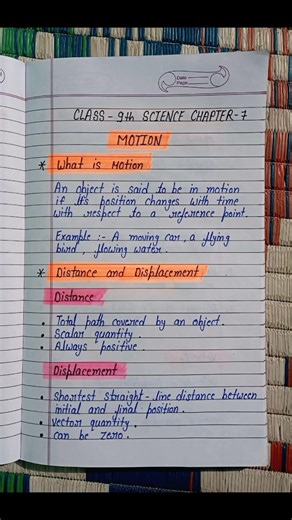 Date
Page
CLASS - 9th SCIENCE CHAPTER-7
MOTION
* What is Motion
An object is said to be in motion
if its position changes with time
with respect to a reference point.
Example :- A moving car, a flying
bird, flowing water.
* Distance and Displacement
Distance
• Total path covered by an object.
• Scalar quantity.
• Always positive.
Displacement
• Shortest straight-line distance between
initial and final position.
• Vector quantity.
• Can be zero.